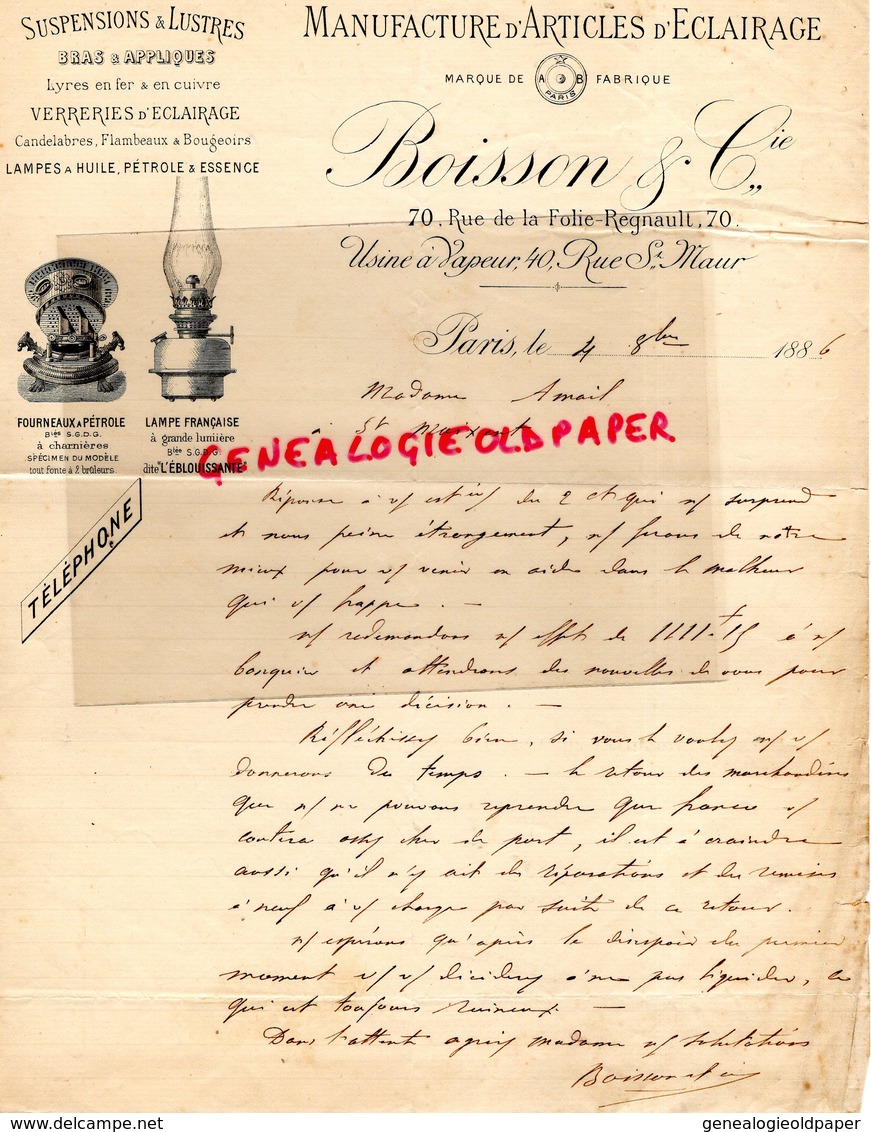 SUSPENSIONS & LUSTRES
BRAS & APPLIQUES
Lyres en fer & en cuivre
VERRERIES D'ECLAIRAGE
Candelabres, Flambeaux & Bougeoirs
LAMPES A HUILE, PÉTROLE & ESSENCE
MANUFACTURE D'ARTICLES D'ECLAIRAGE
MARQUE DE A B FABRIQUE
PARIS
Boisson & Cie
70, Rue de la Folie-Regnault, 70.
Usine à Vapeur, 40, Rue St. Maur
Paris, le 4 8bre 1886
FOURNEAUX A PÉTROLE
Btés S.G.D.G.
à charnières
SPÉCIMEN DU MODÈLE
tout fonte à 2 brûleurs.
LAMPE FRANÇAISE
à grande lumière
Btée S.G.D.G.
dite "L'ÉBLOUISSANTE"
TÉLÉPHONE
Madame Amail
à St
GENEALOGIEOLDPAPER
Réponse à v/ du 2 ct qui n/ surprend
et nous peine étrangement, n/ ferons de notre
mieux pour v/ venir en aide dans le malheur
qui v/ frappe. —
n/ redemandons n/ effet de à n/
banquier et attendrons des nouvelles de vous pour
prendre une décision. —
Réfléchissez bien, si vous le voulez n/ v/
donnerons du temps. — le retour des marchandises
que n/ ne pouvons reprendre que franco v/
coutera assez cher de port, il est à craindre
aussi qu'il n'y ait des réparations et des remises
à neuf à v/ charge par suite de ce retour.
n/ espérons qu'après le désespoir du premier
moment v/ v/ déciderez à ne pas liquider, ce
qui est toujours ruineux. —
Dans l'attente agréez madame n/ salutations
Boisson et cie
genealogieoldpaper